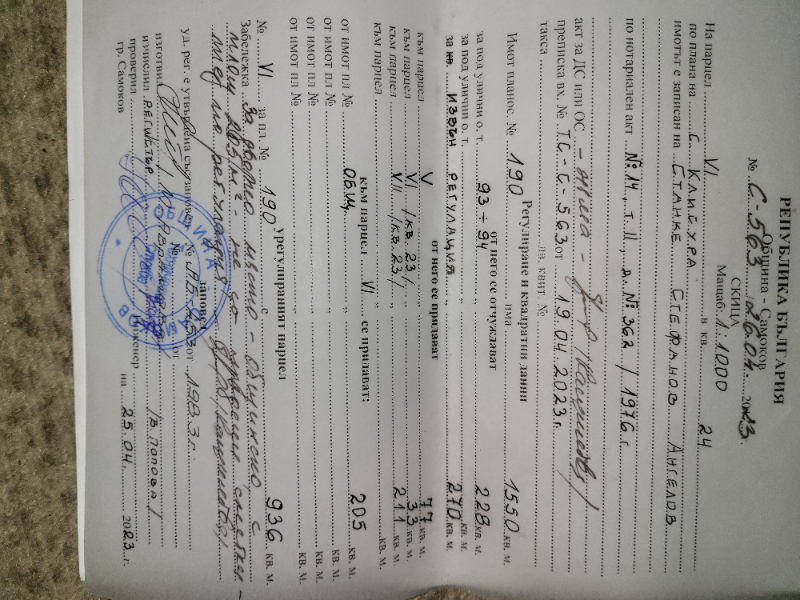 РЕПУБЛИКА БЪЛГАРИЯ
Община - Самоков
№ С-563 / 26.04. 2023
СКИЦА
Мащаб: 1:1000
На парцел VI в кв. 24
по плана на с. Клисура
имотът е записан на Станке Стефанов Ангелов
по нотариален акт №14, т. II, д. №362 / 1976 г
акт за ДС или ОС - няма -
преписка вх. № ТС-С-563 от 19.04.2023 г
такса на. квит. №
Регулиране и квадратни данни
Имот планос. № 190 има 1550 кв. м.
ОТ НЕГО СЕ ОТЧУЖДАВАТ
за под улични о. т. 93÷94 228 кв. м.
за под улични о. т. " кв. м.
за кв. извън регулация 210 кв. м.
от него се придават
към парцел V 77 кв. м.
към парцел VI /кв. 23/ 33 кв. м.
към парцел VII /кв. 23/ 211 кв. м.
към парцел " кв. м.
към парцел VI се придават:
от имот пл № Общ. 205 кв. м.
от имот пл № " кв. м.
от имот пл № " кв. м.
от имот пл № " кв. м.
Урегулираният парцел
№ VI за пл. № 190 с 936 кв. м.
Забележка За дворно място - общинско, с
площ 205 м² - не са уредени сметки
по регулация
заповед
ул. рег. е утвърдена със заповед № АБ-II-53 от 1983 г.
изготвил
изчислил регистър / В. Попова /
проверил Инженер
гр. Самоков на 25.04. 2023 г.
ОБЩИНА САМОКОВ